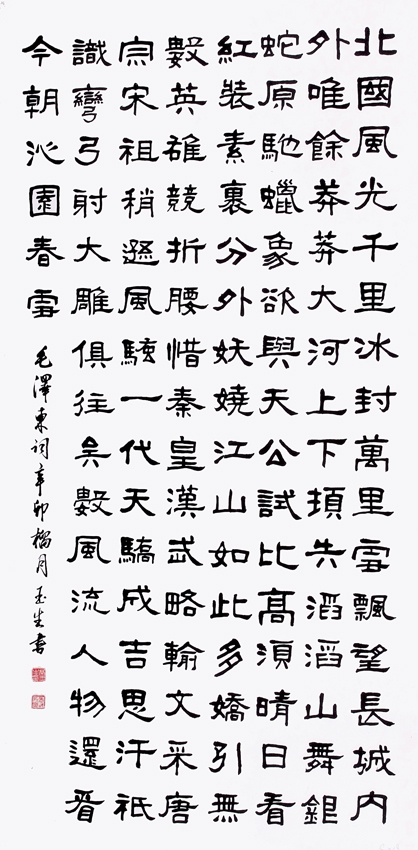 北國風光千里冰封萬里雪飄望長城內
外唯餘莽莽大河上下頓失滔滔山舞銀
蛇原馳蠟象欲與天公試比高須晴日看
紅裝素裹分外妖嬈江山如此多嬌引無
數英雄競折腰惜秦皇漢武略輸文采唐
宗宋祖稍遜風騷一代天驕成吉思汗祗
識彎弓射大雕俱往矣數風流人物還看
今朝沁園春雪
毛澤東詞辛卯榴月玉生書